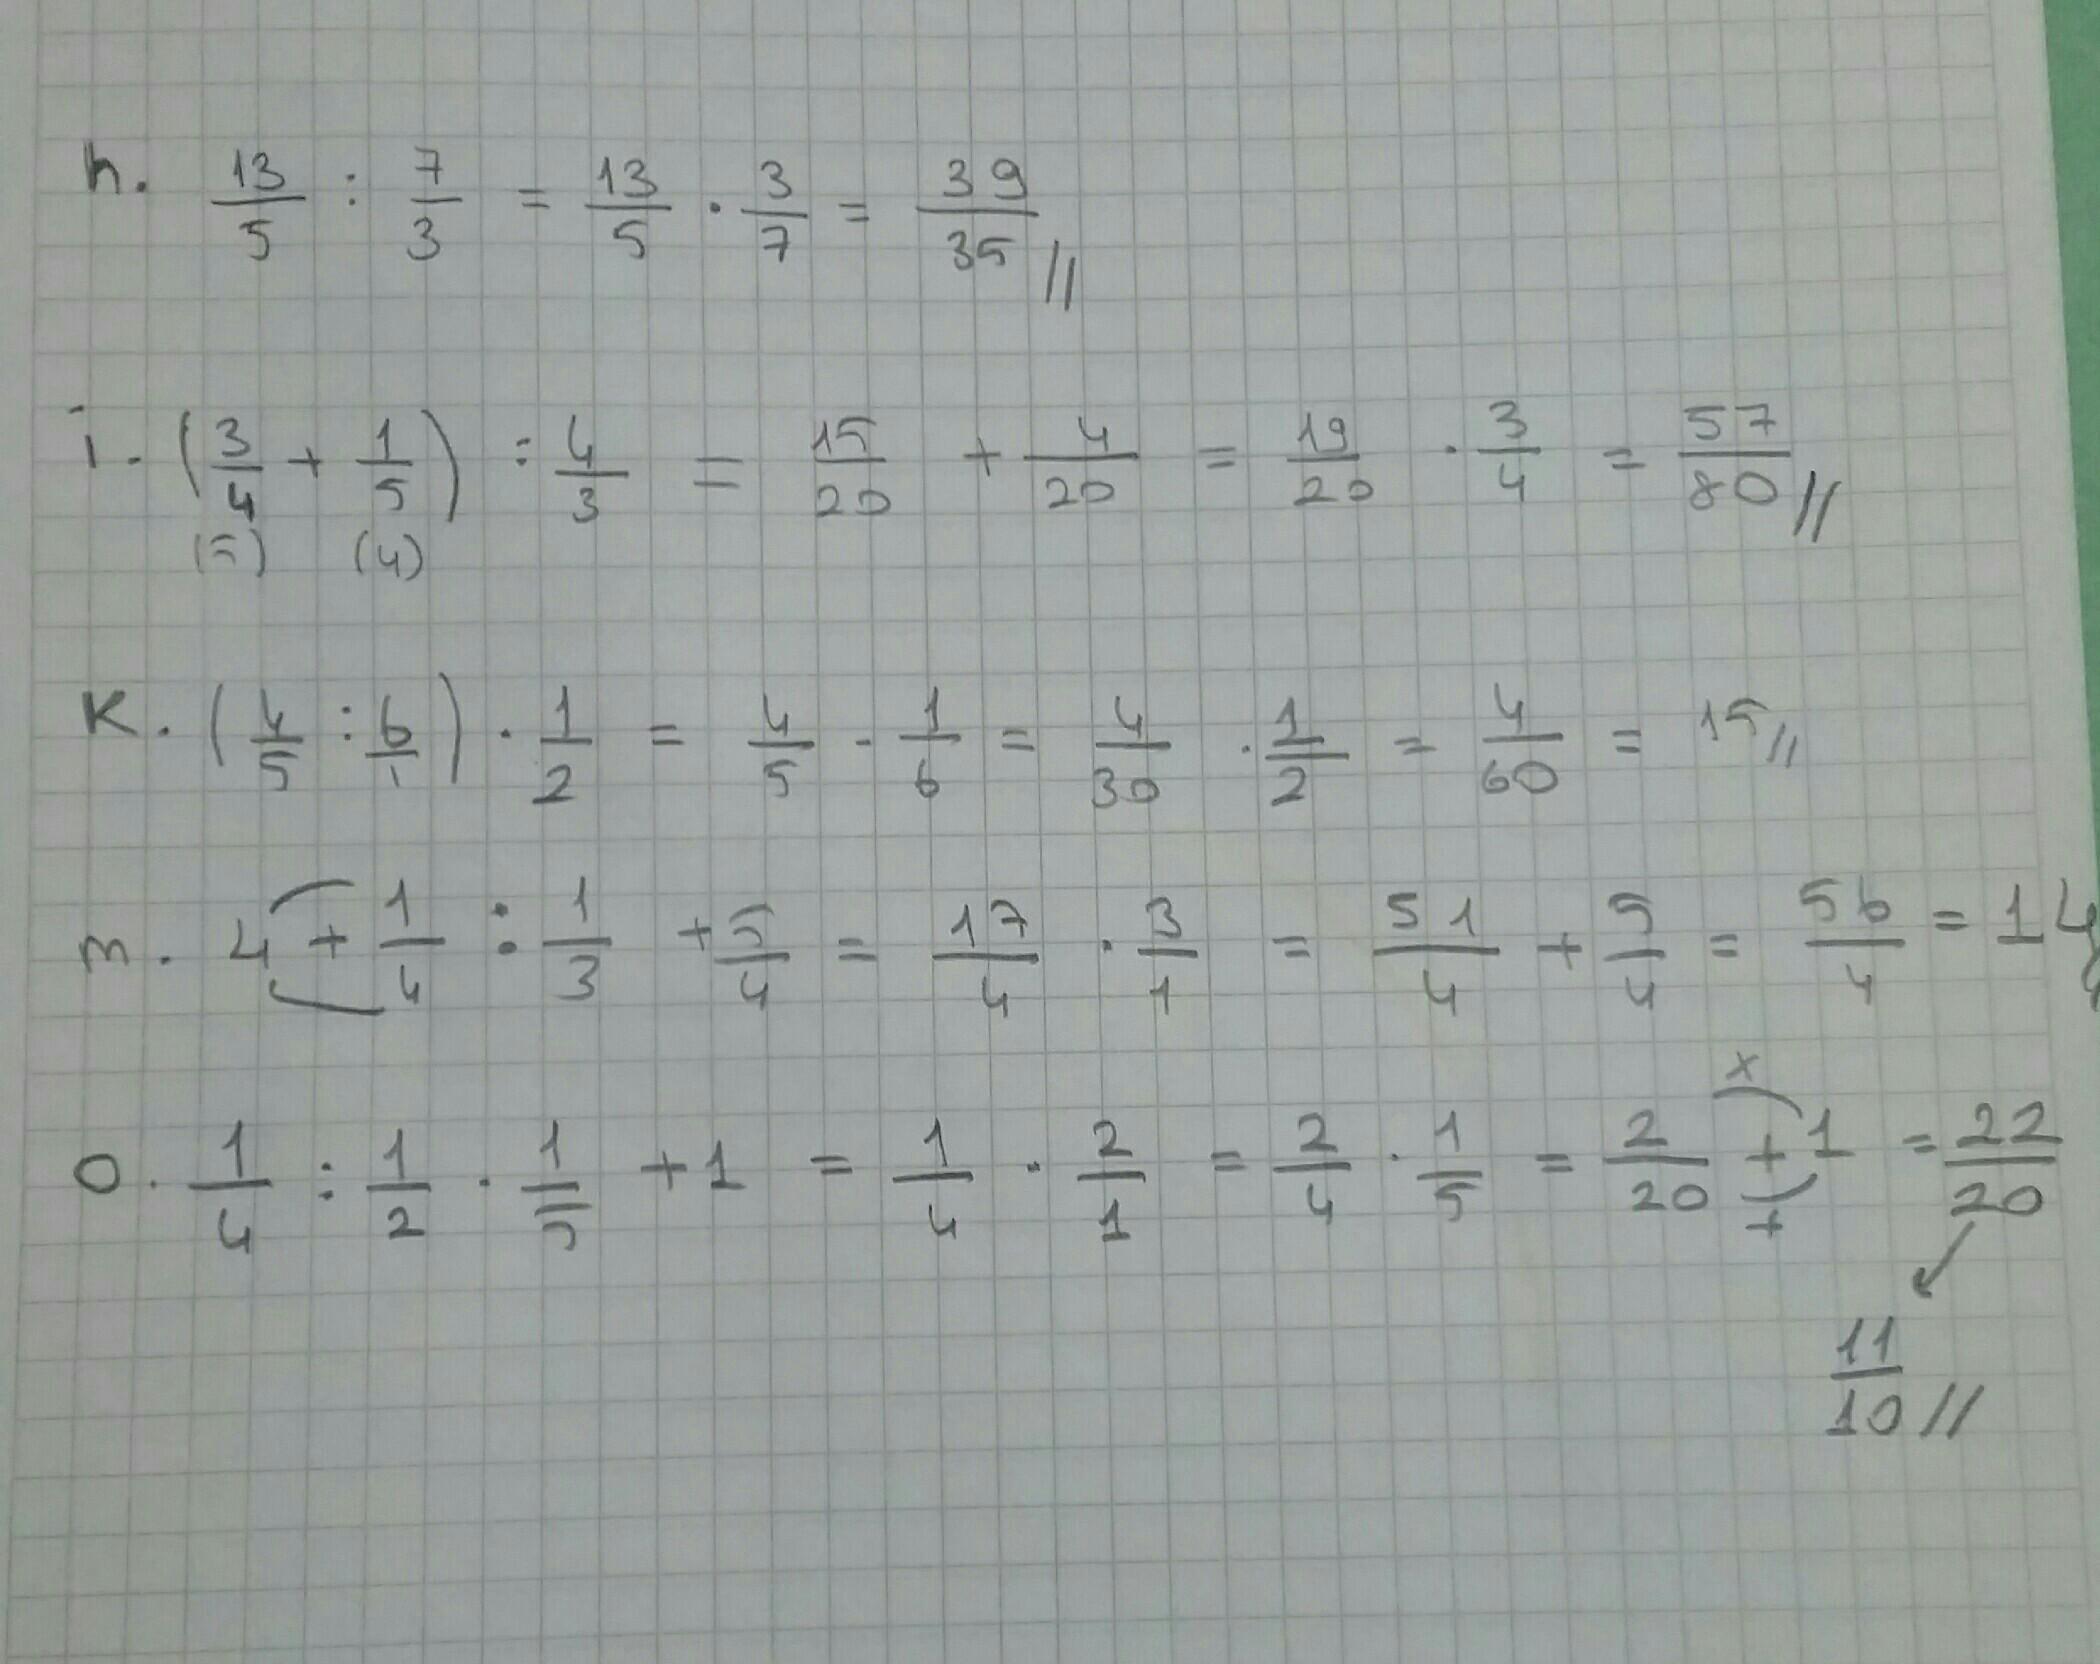 h. 13/5 : 7/3 = 13/5 · 3/7 = 39/35 //
i. (3/4 + 1/5) : 4/3 = 15/20 + 4/20 = 19/20 · 3/4 = 57/80 //
(5) (4)
K. (4/5 : 6/1) · 1/2 = 4/5 · 1/6 = 4/30 · 1/2 = 4/60 = 15 //
m. 4 + 1/4 : 1/3 + 5/4 = 17/4 · 3/1 = 51/4 + 5/4 = 56/4 = 14
x
o. 1/4 : 1/2 · 1/5 + 1 = 1/4 · 2/1 = 2/4 · 1/5 = 2/20 + 1 = 22/20
+
11/10 //